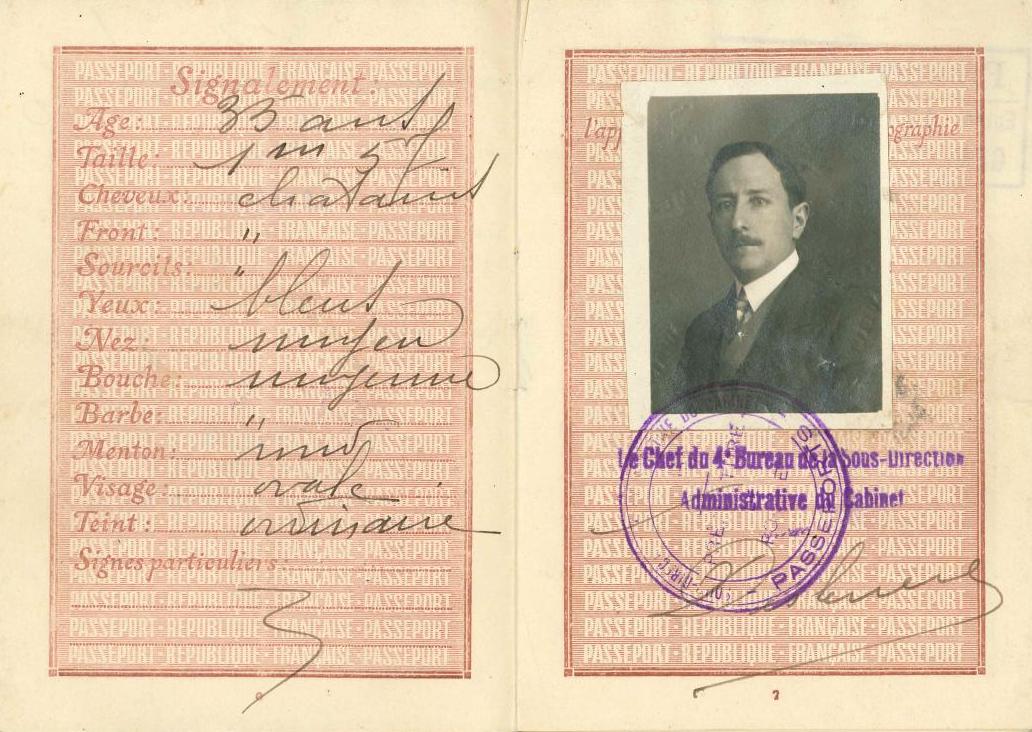 Signalement:
Age: 35 ans
Taille: 1m 57
Cheveux: chatains
Front: "
Sourcils: "
Yeux: bleus
Nez: moyen
Bouche: moyenne
Barbe: "
Menton: rond
Visage: ovale
Teint: ordinaire
Signes particuliers:
PASSEPORT-RÉPUBLIQUE-FRANÇAISE-PASSEPORT
l'app ographie
Le Chef du 4e Bureau de la Sous-Direction
Administrative du Cabinet
PASSEPORTS
7